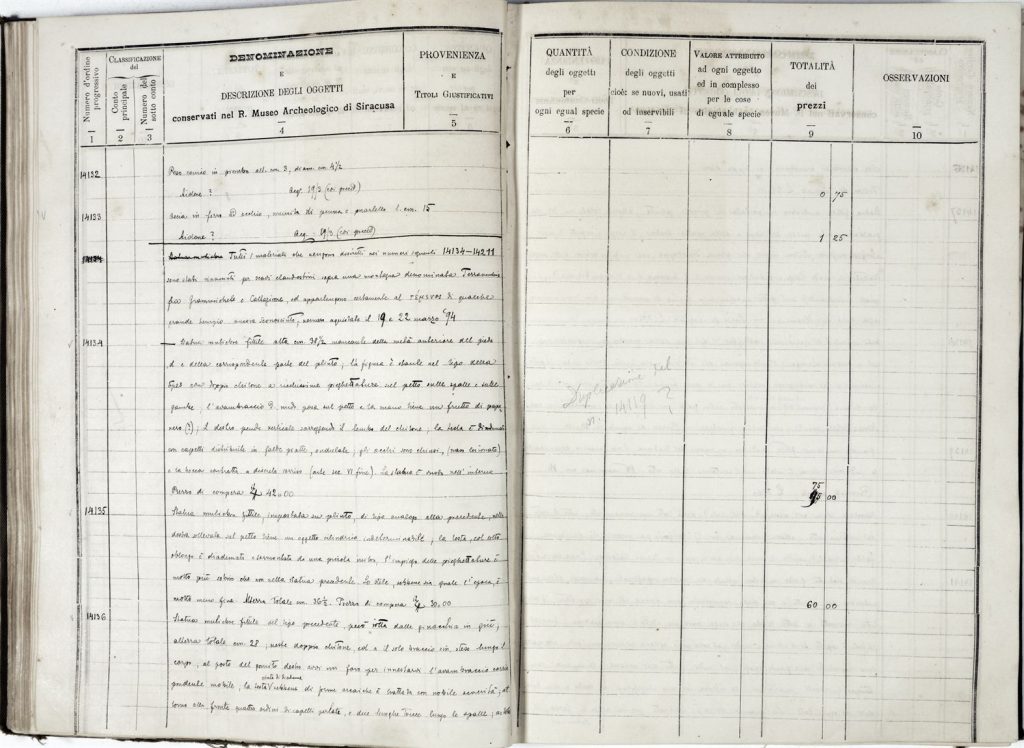 Numero d'ordine progressivo
1
CLASSIFICAZIONE
del
Conto principale
2
Numero del sotto conto
3
DENOMINAZIONE
E
DESCRIZIONE DEGLI OGGETTI
conservati nel R. Museo Archeologico di Siracusa
4
PROVENIENZA
E
TITOLI GIUSTIFICATIVI
5
QUANTITÀ
degli oggetti
per
ogni egual specie
6
CONDIZIONE
degli oggetti
cioè: se nuovi, usati
od inservibili
7
VALORE ATTRIBUITO
ad ogni oggetto
ed in complesso
per le cose
di eguale specie
8
TOTALITÀ
dei
prezzi
9
OSSERVAZIONI
10
14132
Peso conico in all. cm 3, diam. cm 4 1/2
Aidone ? Acq. 19/3 (coi preced)
0 75
14133
Ascia in ferro ad occhio, munita di penna e martello l. cm. 15
Aidone ? Acq. 19/3 (coi preced)
1 25
14134
Tutti i materiali che vengono descritti nei numeri seguenti 14134—14211
sono stati rinvenuti per scavi clandestini sopra una montagna denominata Terravecchia
fra Grammichele e Caltagirone, ed appartengono certamente al τέμενος di qualche
grande tempio ancora sconosciuto, vennero acquistati il 19 e 22 marzo '94
14134
— Statua muliebre fittile alta cm. 38 1/2 mancante della metà anteriore del piede
d e della corrispondente parte del plinto; la figura è stante nel tipo della
con doppio chitone a pieghettature nel petto sulle spalle e sulle
gambe l'avambraccio nudo posa sul petto e la mano tiene un frutto di
(?); il destro pende verticale il lembo del chitone, la testa è diademata
con capelli distribuiti in fasce piatte, ondulate; gli occhi sono chiusi, (non
e la bocca contratta a discreto sorriso (arte sec VI fine). La statua è vuota nell'interno
Prezzo di compera £ 42.00
75
95 00
Duplicazione del
n. 14119 ?
14135
Statua muliebre fittile, impostata su plinto, di tipo analogo alla precedente, nella
destra sollevata sul petto tiene un oggetto cilindrico indeterminabile, la testa, col volto
oblungo è diademata e sormontata da una piccola L'impiego delle pieghettature è
molto più sobrio che non nella statua precedente. Lo stile, sebbene sia quale l'epoca, è
molto meno fine Altezza totale cm. 36 1/2. Prezzo di compera £ 30.00
60 00
14136
Statua muliebre fittile del tipo precedente, però rotta dalle ginocchia in giù,
altezza totale cm. 28, veste doppio chitone, ed a il solo braccio sin. steso lungo il
corpo, al posto del gomito destro avvi un foro per innestarvi l'avambraccio
pendente mobile, la testa sebbene di forme arcaiche è trattata con nobile severità,
torno alla fronte quattro ordini di capelli perlati, e due lunghe trecce lungo le spalle;